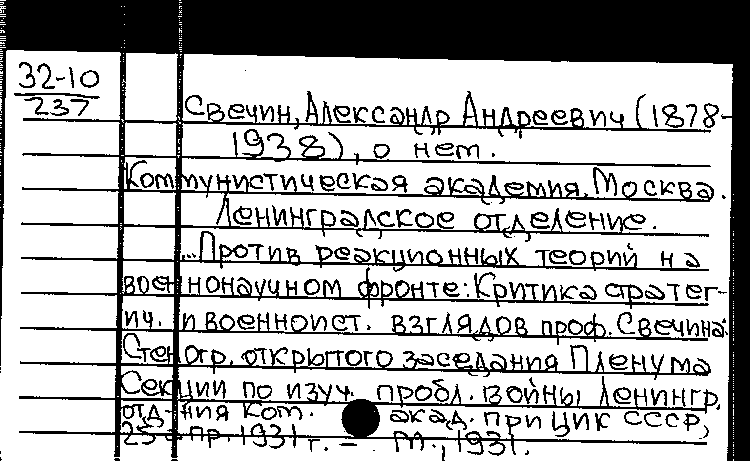 32-10
237
Свечин, Александр Андреевич (1878-
1938), о нем.
Коммунистическая академия. Москва.
Ленинградское отделение.
...Против реакционных теорий на
военнонаучном фронте: Критика стратег-
ич. и военноист. взглядов проф. Свечина:
Стеногр. открытого заседания Пленума
Секции по изуч. пробл. войны Ленингр.
отд-ния Ком. акад. при ЦИК СССР,
25 апр. 1931 г. – М., 1931.